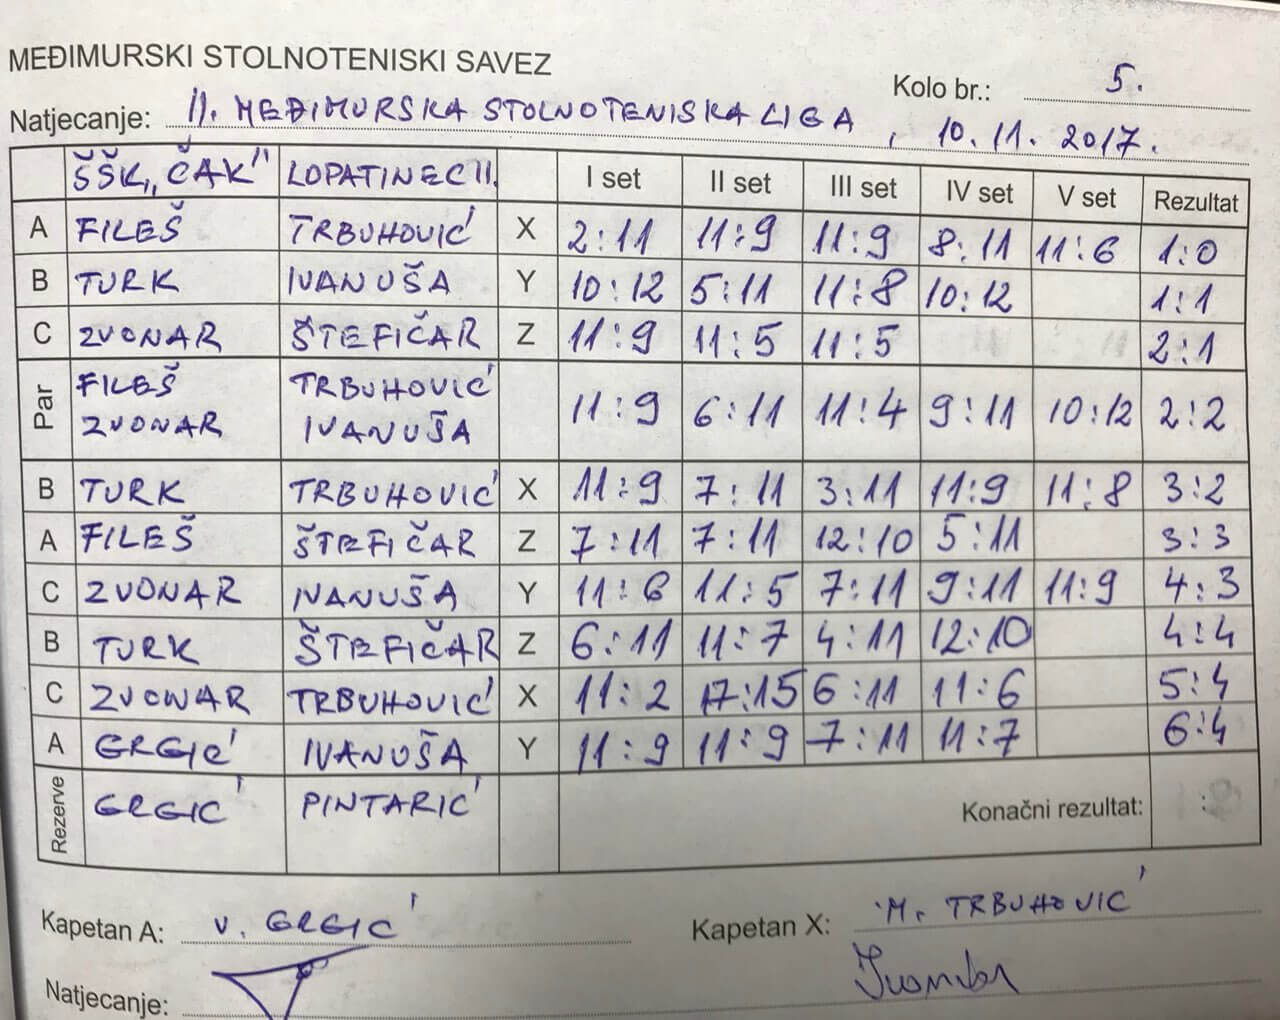 MEĐIMURSKI STOLNOTENISKI SAVEZ
Kolo br.: 5.
Natjecanje: II. MEĐIMURSKA STOLNOTENISKA LIGA, 10.11.2017.
ŠŠK „ČAK" LOPATINEC II. I set II set III set IV set V set Rezultat
A FILEŠ TRBUHOVIĆ X 2:11 11:9 11:9 8:11 11:6 1:0
B TURK IVANUŠA Y 10:12 5:11 11:8 10:12 1:1
C ZVONAR ŠTEFIČAR Z 11:9 11:5 11:5 2:1
Par FILEŠ TRBUHOVIĆ 11:9 6:11 11:4 9:11 10:12 2:2
ZVONAR IVANUŠA
B TURK TRBUHOVIĆ X 11:9 7:11 3:11 11:9 11:8 3:2
A FILEŠ ŠTEFIČAR Z 7:11 7:11 12:10 5:11 3:3
C ZVONAR IVANUŠA Y 11:6 11:5 7:11 9:11 11:9 4:3
B TURK ŠTEFIČAR Z 6:11 11:7 4:11 12:10 4:4
C ZVONAR TRBUHOVIĆ X 11:2 17:15 6:11 11:6 5:4
A GRGIĆ IVANUŠA Y 11:9 11:9 7:11 11:7 6:4
Rezerve GRGIĆ PINTARIĆ Konačni rezultat: :
Kapetan A: V. GRGIĆ Kapetan X: M. TRBUHOVIĆ
Natjecanje: